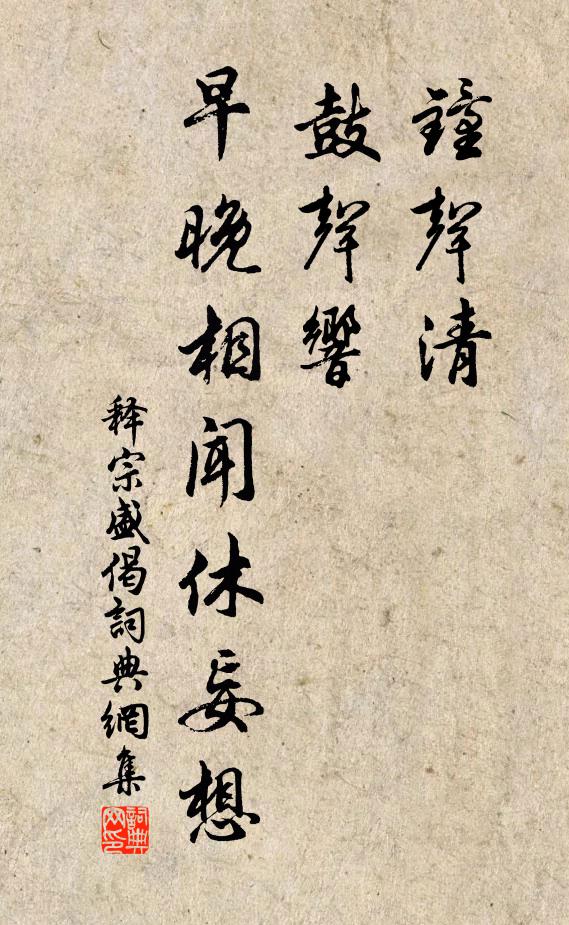 鐘聲清
鼓聲響
早晚相聞休妄想
释宗盛偈詞典網集
詞典网印